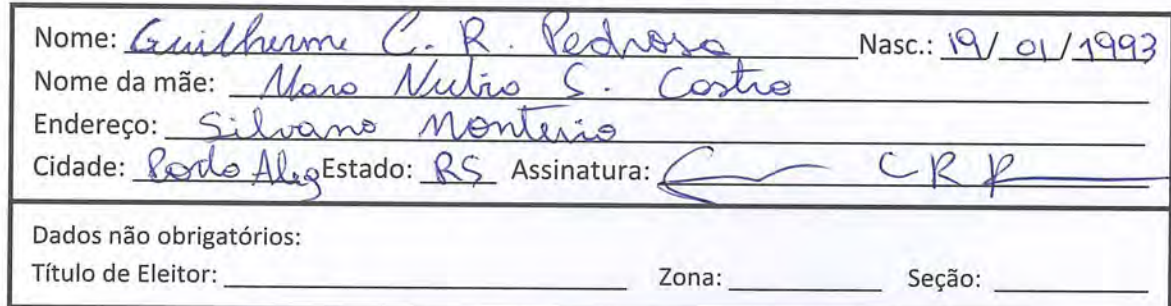 Nome: Guilherme C. R. Pedrosa Nasc.: 19/01/1993
Nome da mãe: S. Castro
Endereço: Silvano Monteiro
Cidade: Porto Aleg Estado: RS Assinatura: CRP
Dados não obrigatórios:
Título de Eleitor: Zona: Seção: